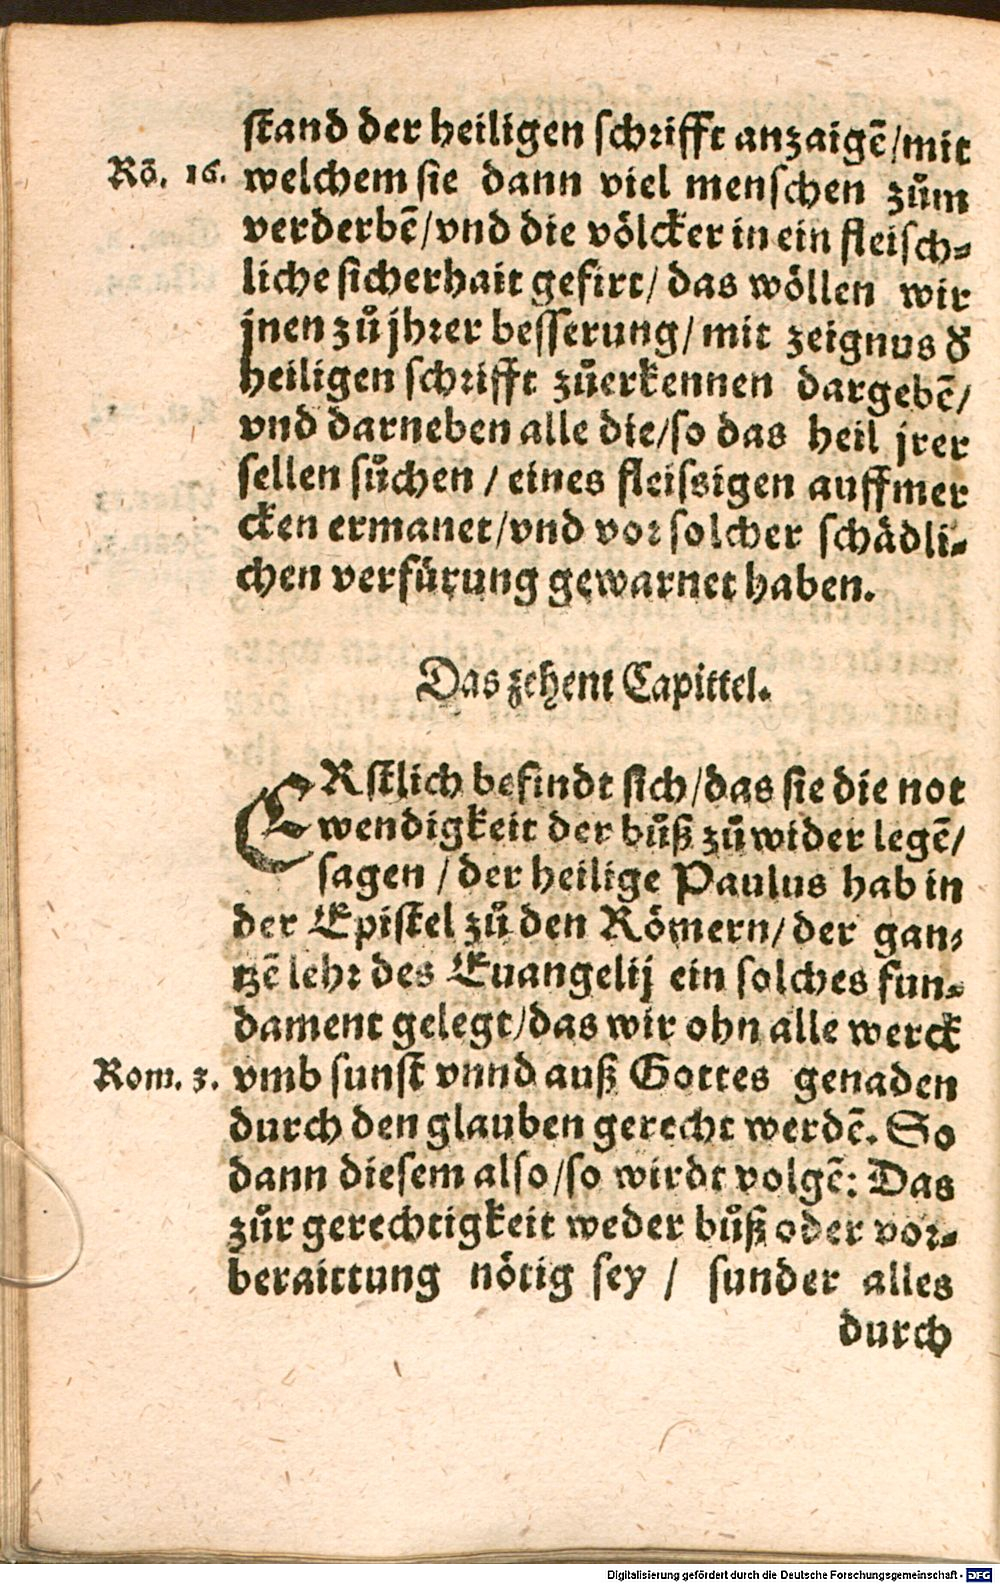 stand der heiligen schrifft anzaigẽ/mit
Rõ. 16.
welchem sie dann viel menschen zům
verderbẽ/vnd die völcker in ein fleisch⸗
liche sicherhait gefirt/ das wöllen wir
jnen zů jhrer besserung/ mit zeignus d̕
heiligen schrifft zůerkennen dargebẽ/
vnd darneben alle die/so das heil jrer
sellen sůchen / eines fleissigen auffmer
cken ermanet/vnd vor solcher schädli⸗
chen verfürung gewarnet haben.
Das zehent Capittel.
ERstlich befindt sich/das sie die not
wendigkeit der bůß zů wider legẽ/
sagen / der heilige Paulus hab in
der Epistel zů den Römern/ der gan⸗
tzẽ lehr des Euangelij ein solches fun⸗
dament gelegt/das wir ohn alle werck
Rom. 3.
vmb sunst vnnd auß Gottes genaden
durch den glauben gerecht werdẽ. So
dann diesem also/so wirdt volgẽ: Das
zůr gerechtigkeit weder bůß oder vor⸗
beraittung nötig sey / sunder alles
durch
Digitalisierung gefördert durch die Deutsche Forschungsgemeinschaft - DFG